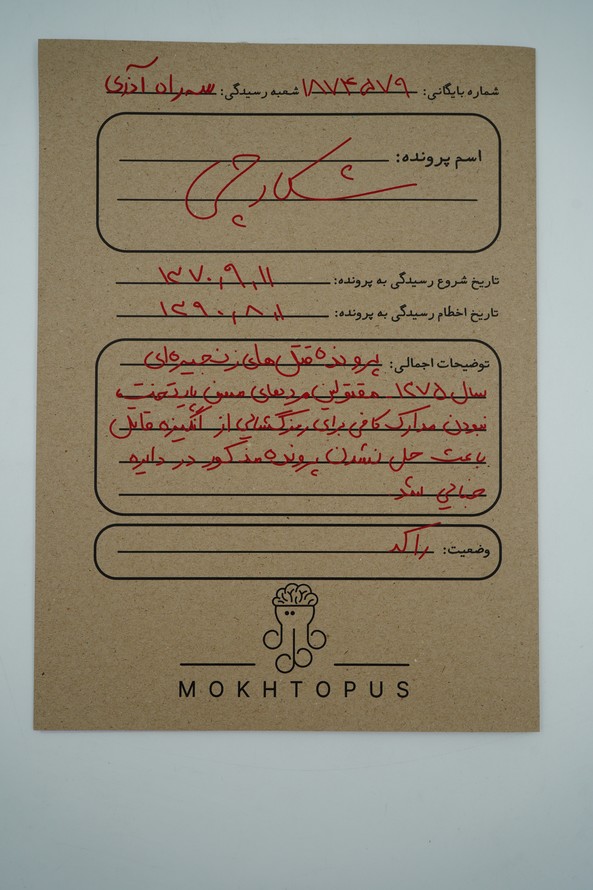 شماره بایگانی: ۱۸۷۴۵۷۹ شعبه رسیدگی: سهراه آذری
اسم پرونده:
شکارچی
تاریخ شروع رسیدگی به پرونده: ۱۳۷۰٫۹٫۱۱
تاریخ اخطام رسیدگی به پرونده: ۱۳۹۰٫۸٫۱
توضیحات اجمالی: پرونده قتل‌های زنجیره‌ای
سال ۱۳۷۵ مقتولین مردهای مسن پایتخت،
نبودن مدارک کافی برای رمزگشایی از انگیزه قاتل
باعث حل نشدن پرونده مذکور در دایره
جنایی شد
وضعیت: راکد
MOKHTOPUS